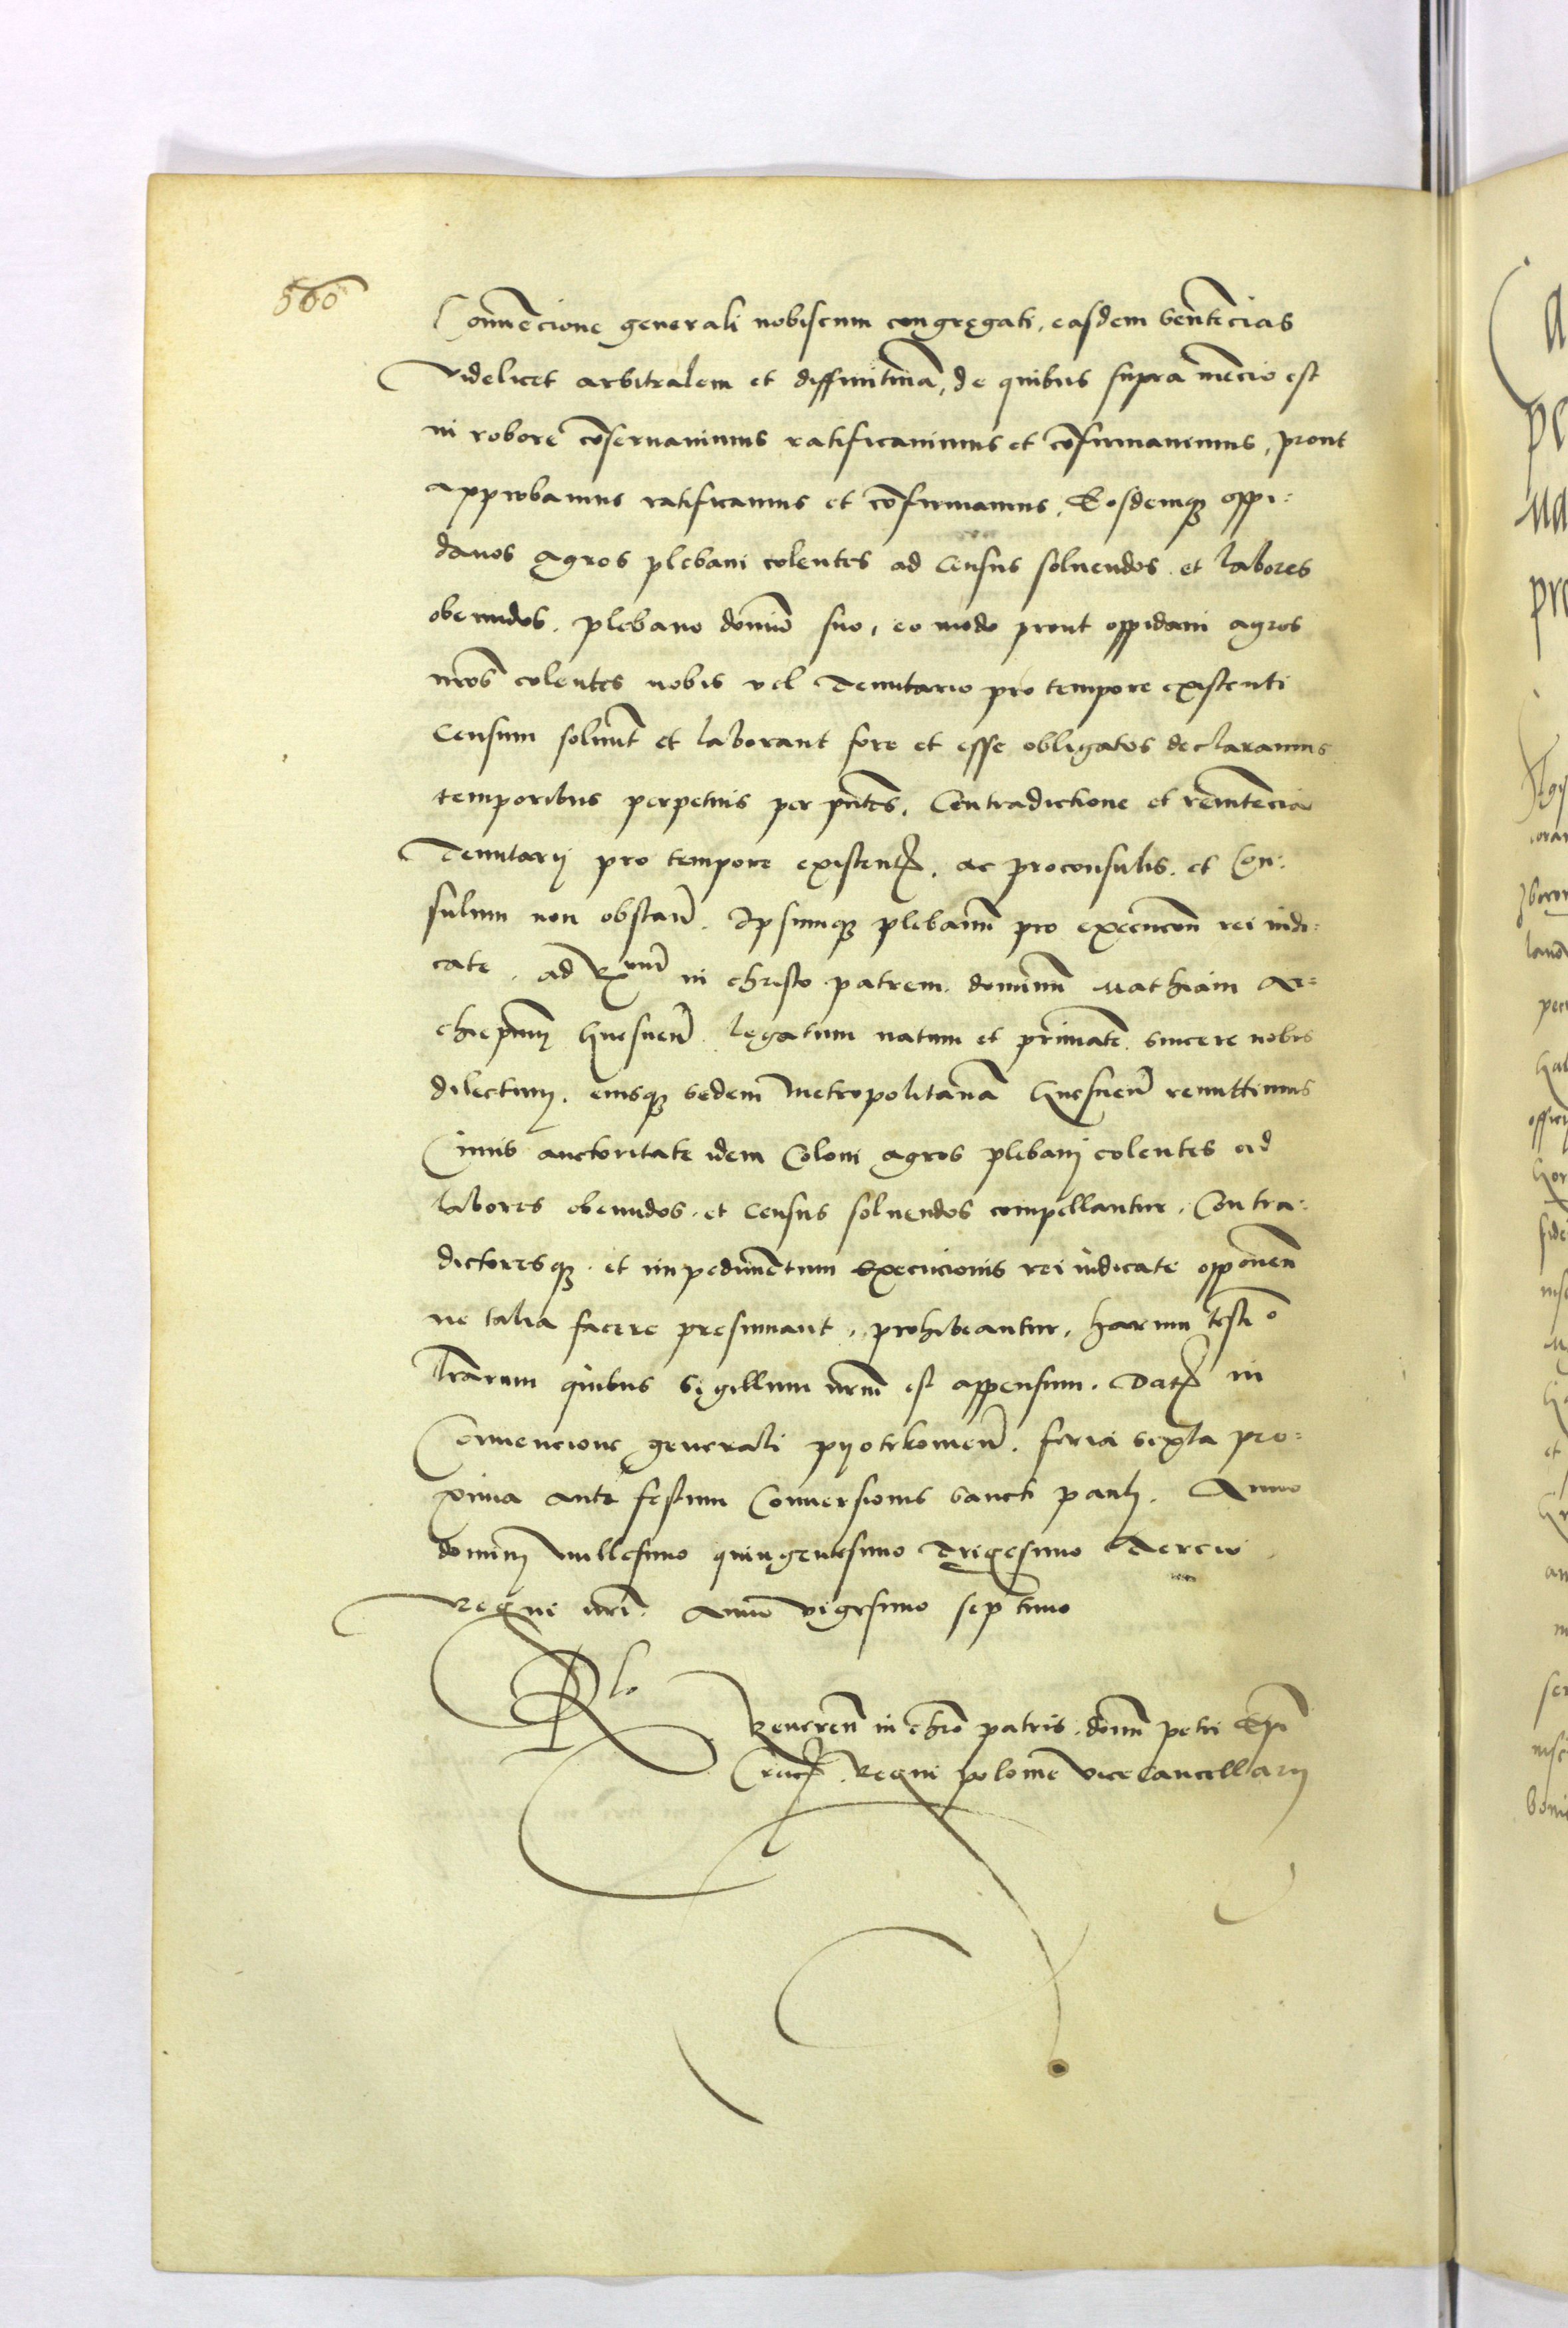 560
Convēcione generali nobiscum congregati, easdem sentēcias
videlicet arbitralem et diffinitivā, de quibus supra mēcio est
in robore cōservavimus ratificavimus et cōfirmavimus, prout
approbamus ratificamus et cōfirmamus, Eosdemqȝ oppi:
danos agros plebani colentes ad census solvendos et labores
obeundos, plebano domīo suo, eo modo prout oppidani agros
nr̄os colentes nobis vel tenutario pro tempore existenti
Censum solvūt et laborant fore et esse obligatos declaramus
temporibus perpetuis per pn̄tes, Contradictione et renitēcia
Tenutarij pro tempore existentꝭ, ac proconsulis et Con:
sulum non obstan̄. Ipsumqȝ plebanū pro execucōn rei iudi:
cate, ad Rmū in christo patrem dominū Mathiam Ar:
chiepūm Gnesnen̄ legatum natum et primatē sincere nobis
dilectum, eiusqȝ sedem metropolitanā Gnesnen̄ remittimus
Cuius auctoritate idem Coloni agros plebani colentes ad
labores obeundos et census solvendos compellantur, Contra:
dictoresqȝ et impedimētum execucionis rei iudicate opponen̄
ne talia facere presumant, prohibeantur, harum testīo
lr̄arum quibus sigillum nr̄m est appensum. Datꝭ in
Convencione generali pyotrkovien̄. feria sexta pro:
xima ante festum Conversionis sancti pauli. Anno
domini millesimo quingentesimo trigesimo tercio
Regni nr̄i Anno vigesimo septimo
Rlo
Reveren̄ in chr̄o patris, domī petri Epī
Cracꝭ Regni polonie vicecancellarij